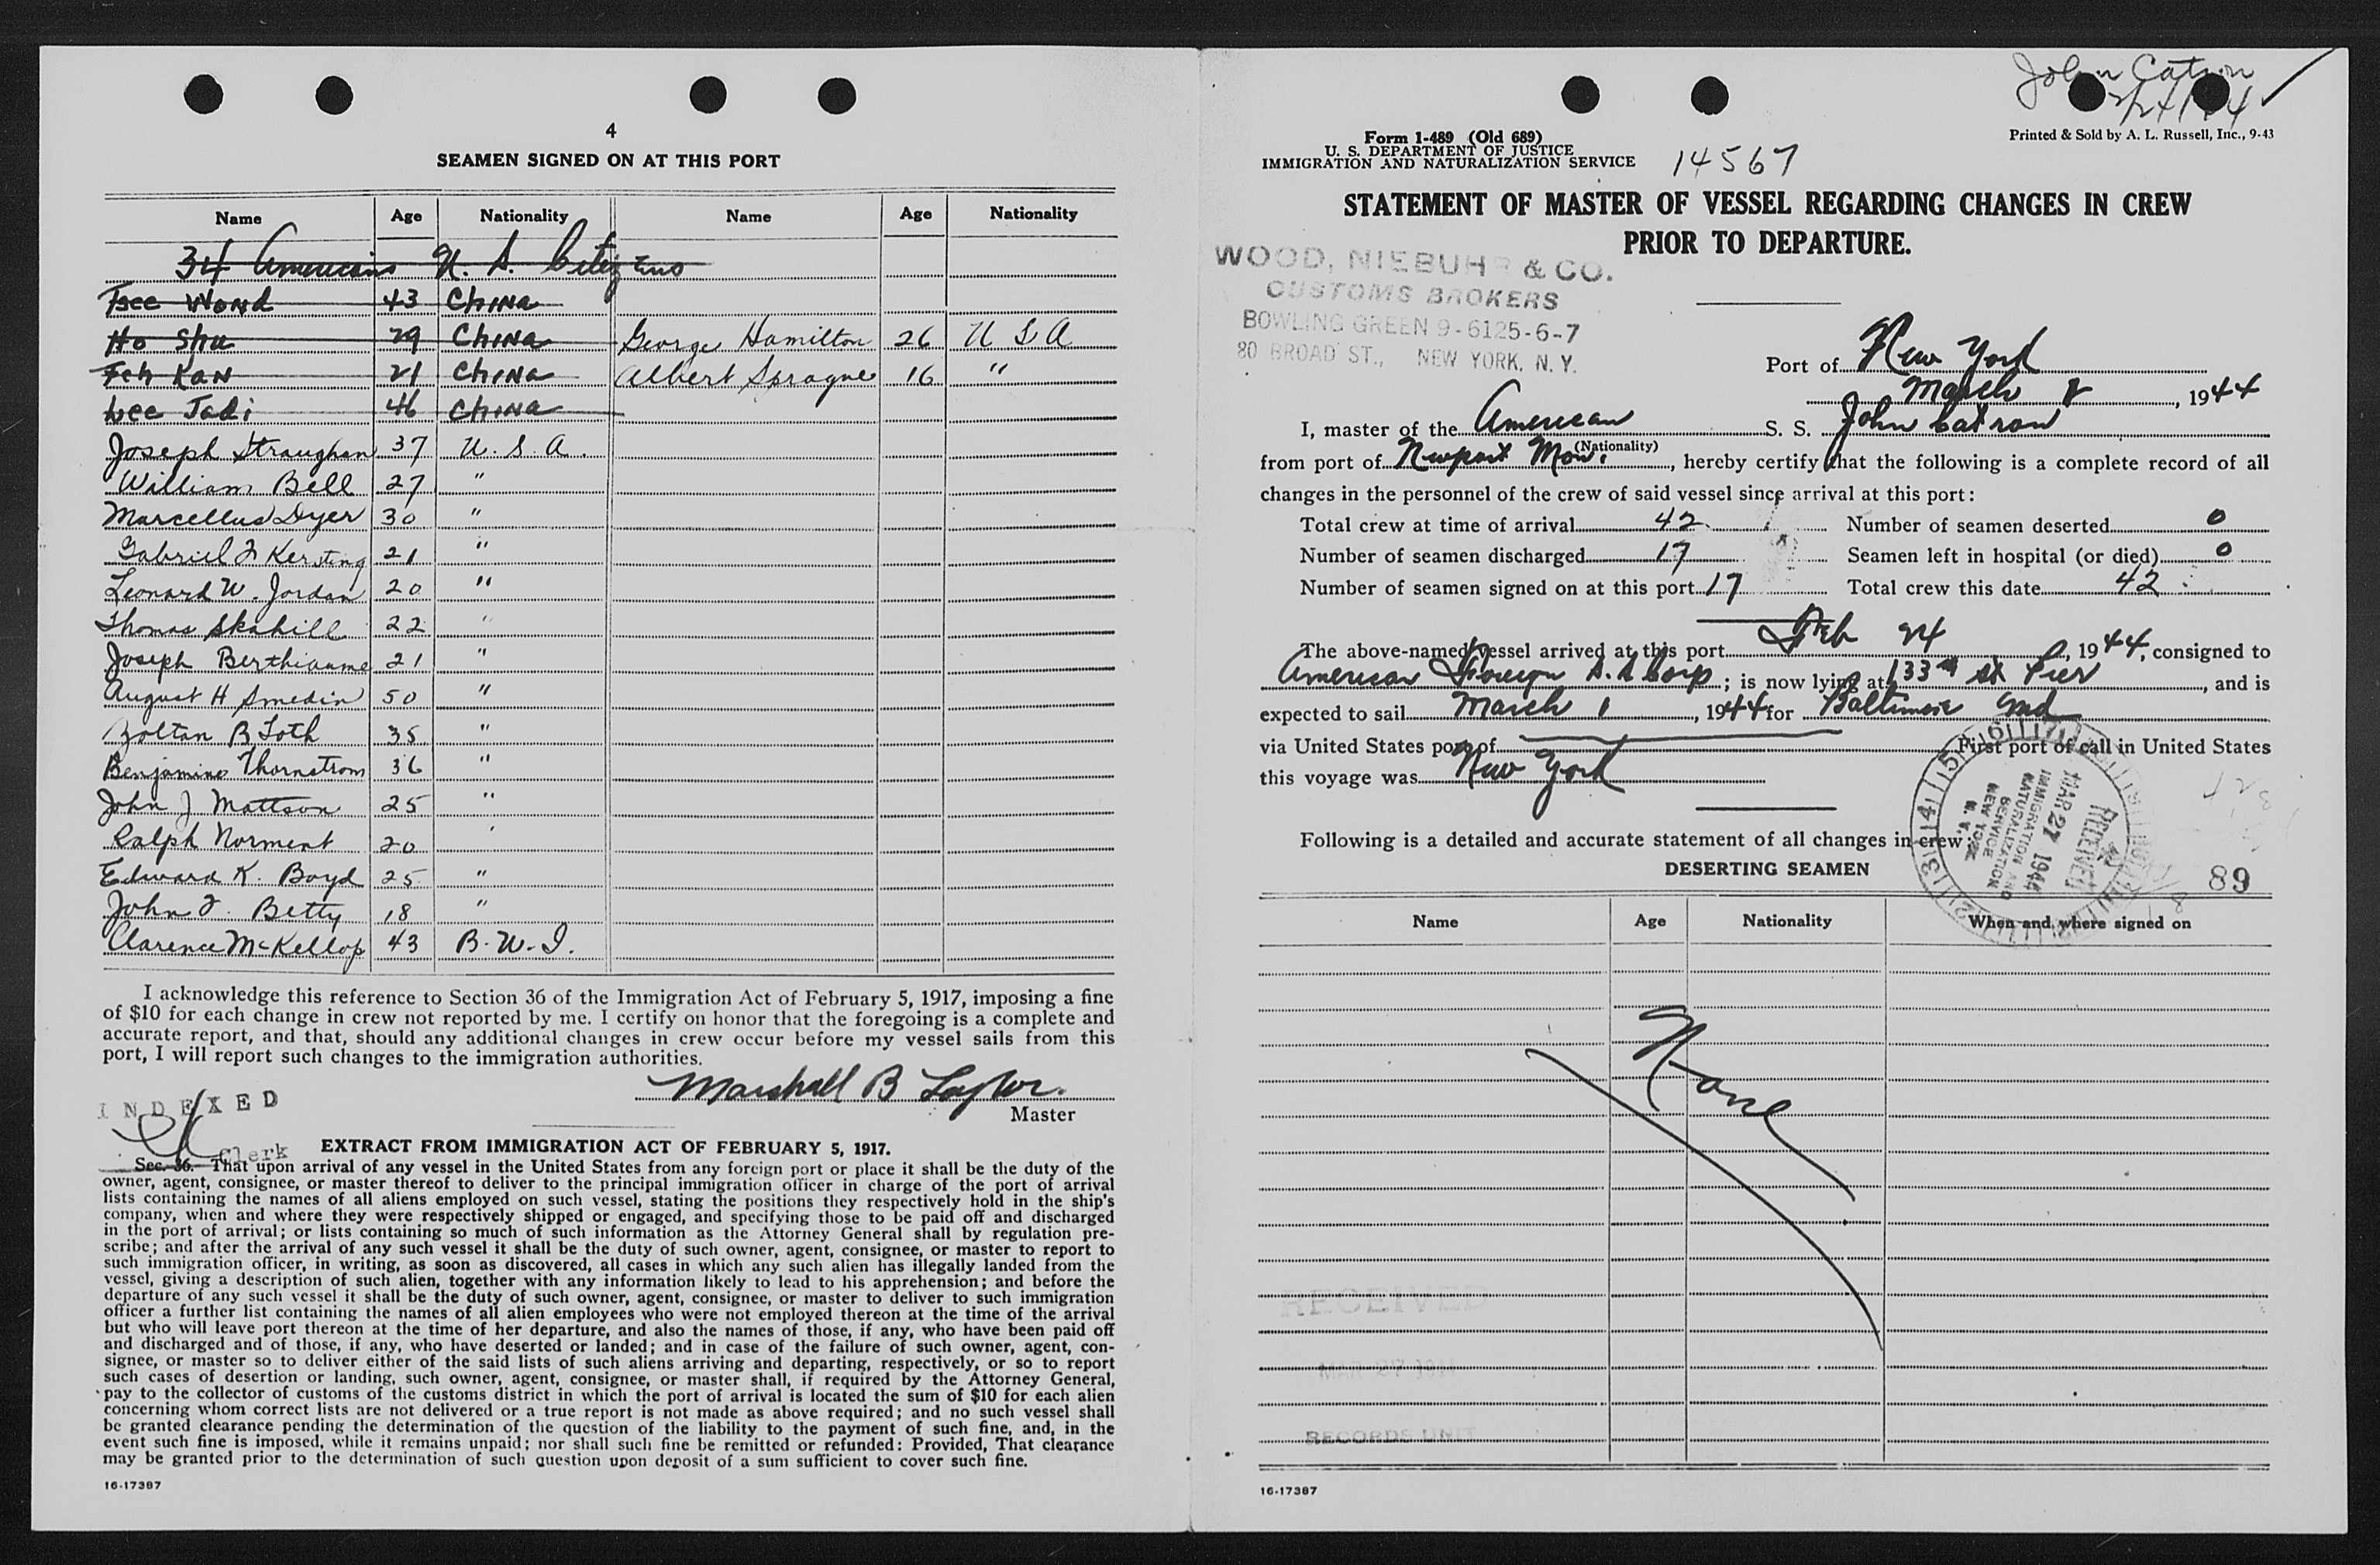 4
SEAMEN SIGNED ON AT THIS PORT
Name Age Nationality Name Age Nationality
34 Americans U. S. Citizens
Tsee Wond 43 China
Ho Shu 29 China George Hamilton 26 U S A
Feh Kan 21 China Albert Sprague 16 "
Lee Jadi 46 China
Joseph Straughan 37 U. S. A.
William Bell 27 "
Marcellus Dyer 30 "
Gabriel J Kersting 21 "
Leonard W. Jordan 20 "
Thomas Skahill 22 "
Joseph Berthiaume 21 "
August H Smedin 50 "
Zoltan B Toth 35 "
Benjamino Thornstrom 36 "
John J Mattson 25 "
Ralph Norment 20 '
Edward K. Boyd 25 "
John J. Betty 18 "
Clarence McKellop 43 B. W. I.
I acknowledge this reference to Section 36 of the Immigration Act of February 5, 1917, imposing a fine
of $10 for each change in crew not reported by me. I certify on honor that the foregoing is a complete and
accurate report, and that, should any additional changes in crew occur before my vessel sails from this
port, I will report such changes to the immigration authorities.
Marshall B Taylor
Master
INDEXED
Clerk
EXTRACT FROM IMMIGRATION ACT OF FEBRUARY 5, 1917.
Sec. 36. That upon arrival of any vessel in the United States from any foreign port or place it shall be the duty of the
owner, agent, consignee, or master thereof to deliver to the principal immigration officer in charge of the port of arrival
lists containing the names of all aliens employed on such vessel, stating the positions they respectively hold in the ship's
company, when and where they were respectively shipped or engaged, and specifying those to be paid off and discharged
in the port of arrival; or lists containing so much of such information as the Attorney General shall by regulation pre-
scribe; and after the arrival of any such vessel it shall be the duty of such owner, agent, consignee, or master to report to
such immigration officer, in writing, as soon as discovered, all cases in which any such alien has illegally landed from the
vessel, giving a description of such alien, together with any information likely to lead to his apprehension; and before the
departure of any such vessel it shall be the duty of such owner, agent, consignee, or master to deliver to such immigration
officer a further list containing the names of all alien employees who were not employed thereon at the time of the arrival
but who will leave port thereon at the time of her departure, and also the names of those, if any, who have been paid off
and discharged and of those, if any, who have deserted or landed; and in case of the failure of such owner, agent, con-
signee, or master so to deliver either of the said lists of such aliens arriving and departing, respectively, or so to report
such cases of desertion or landing, such owner, agent, consignee, or master shall, if required by the Attorney General,
pay to the collector of customs of the customs district in which the port of arrival is located the sum of $10 for each alien
concerning whom correct lists are not delivered or a true report is not made as above required; and no such vessel shall
be granted clearance pending the determination of the question of the liability to the payment of such fine, and, in the
event such fine is imposed, while it remains unpaid; nor shall such fine be remitted or refunded: Provided, That clearance
may be granted prior to the determination of such question upon deposit of a sum sufficient to cover such fine.
16-17387
John Catron
Printed & Sold by A. L. Russell, Inc., 9-43
Form 1-489 (Old 689)
U. S. DEPARTMENT OF JUSTICE
IMMIGRATION AND NATURALIZATION SERVICE 14567
STATEMENT OF MASTER OF VESSEL REGARDING CHANGES IN CREW
PRIOR TO DEPARTURE.
WOOD, NIEBUHR & CO.
CUSTOMS BROKERS
BOWLING GREEN 9-6125-6-7
80 BROAD ST., NEW YORK, N. Y.
Port of New York
March 8, 1944
I, master of the American S. S. John Catron
(Nationality)
from port of Newport Mon., hereby certify that the following is a complete record of all
changes in the personnel of the crew of said vessel since arrival at this port:
Total crew at time of arrival 42 Number of seamen deserted 0
Number of seamen discharged 17 Seamen left in hospital (or died) 0
Number of seamen signed on at this port 17 Total crew this date 42
The above-named vessel arrived at this port Feb 24, 1944, consigned to
American Foreign S. S Corp; is now lying at 133rd St Pier, and is
expected to sail March 1, 1944 for Baltimore Md
via United States port of First port of call in United States
this voyage was New York
RECEIVED
MAR 27 1944
IMMIGRATION AND
NATURALIZATION
SERVICE
NEW YORK
N. Y.
Following is a detailed and accurate statement of all changes in crew:
DESERTING SEAMEN
89
Name Age Nationality When and where signed on
None
RECEIVED
MAR 27 1944
RECORDS UNIT
16-17387